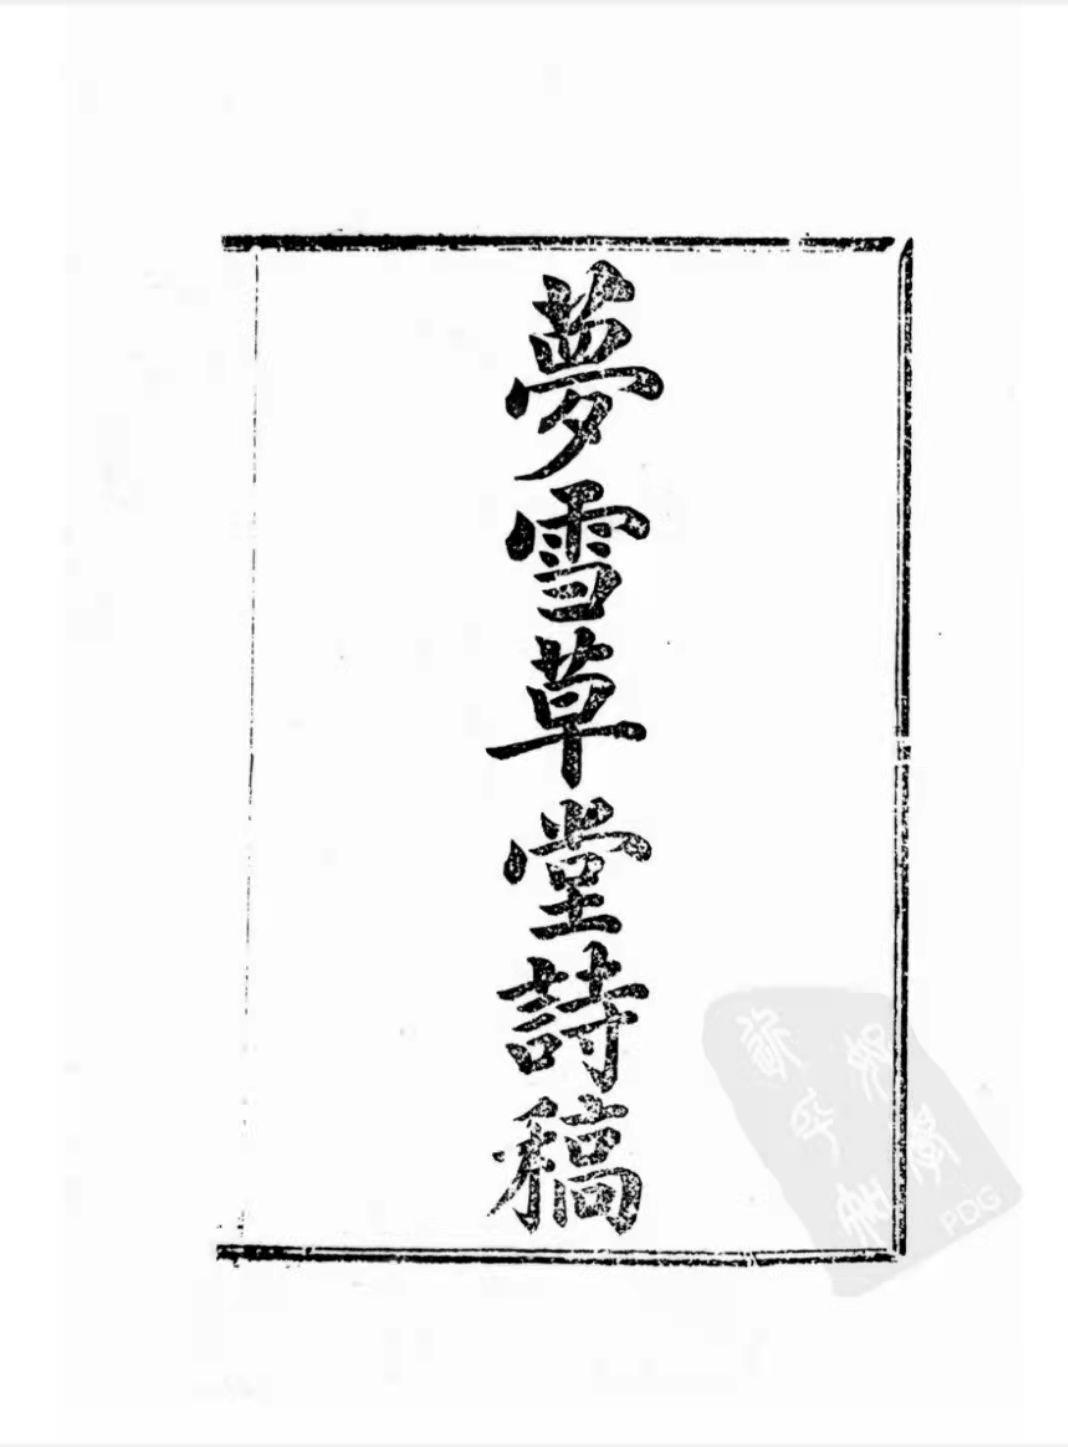 夢雪草堂詩稿
PDG